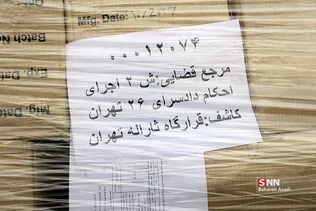 Mfg. Date: 10/2017
Batch No
Exp. Da
Mfg. Dat
۰۰۰۱۲۰۷۴
مرجع قضایی:ش ۲ اجرای
احکام دادسرای ۲۶ تهران
کاشف:قرارگاه ثاراله تهران
SNN
Bahareh Asadi